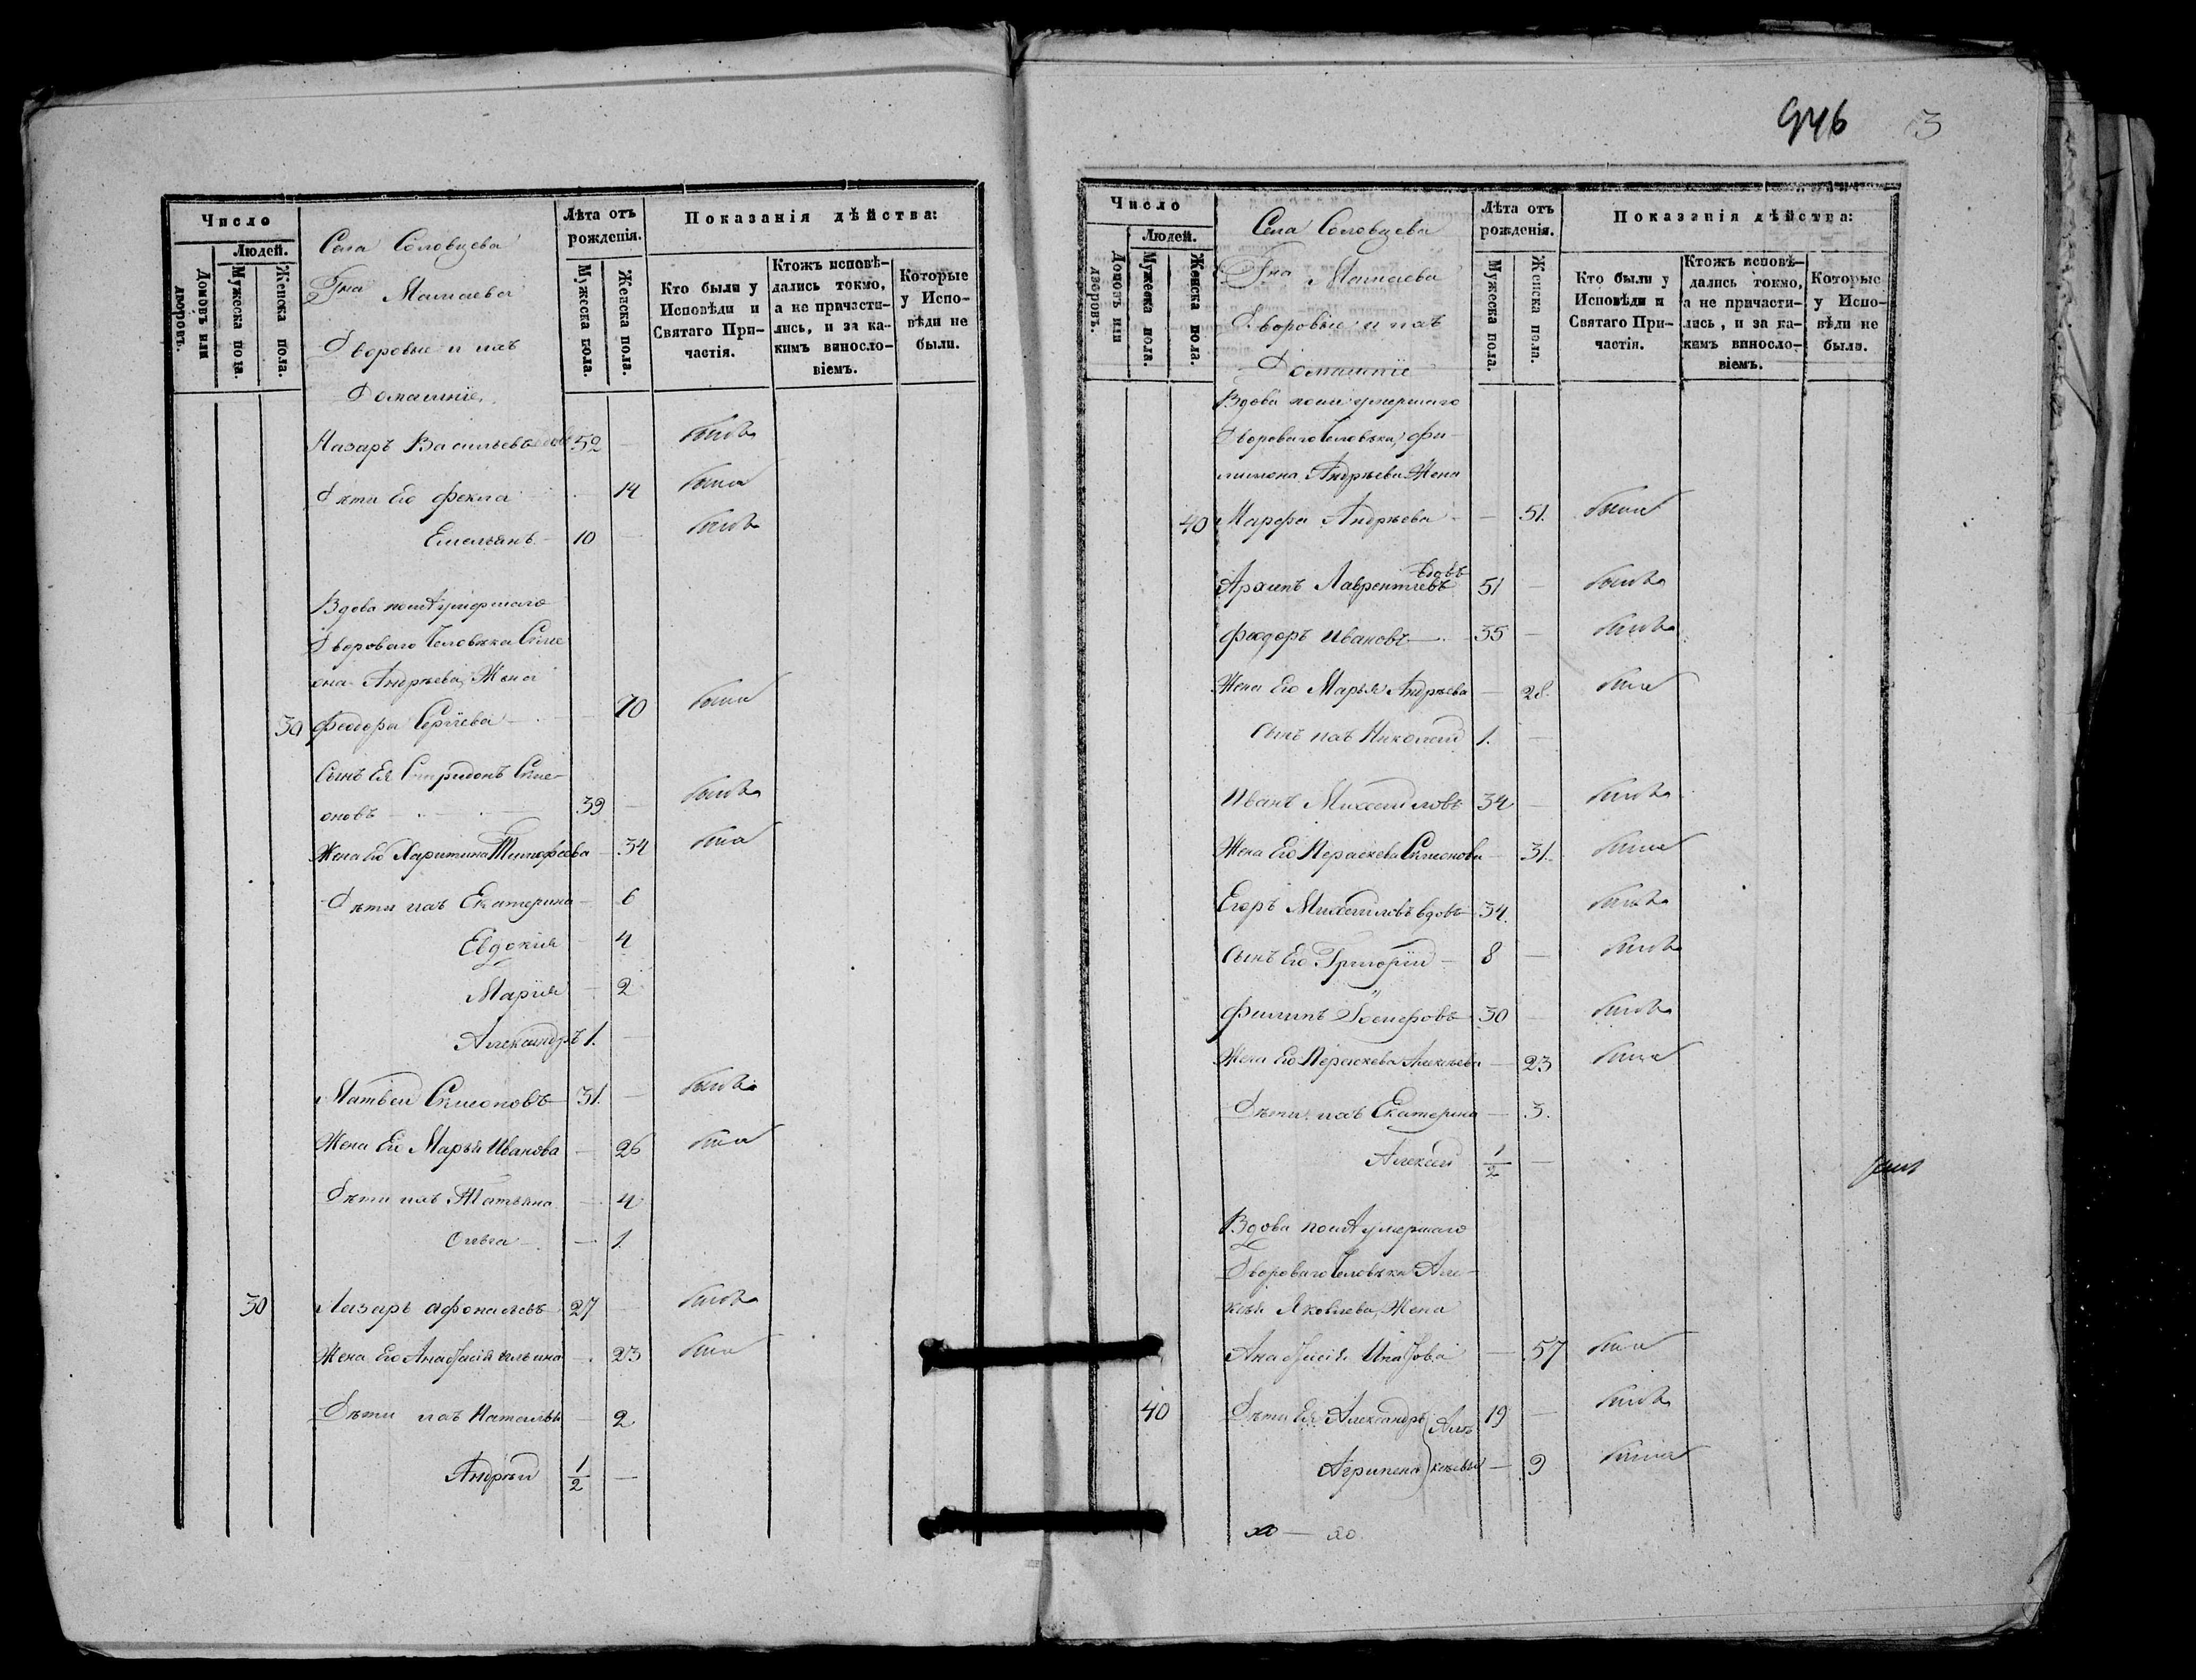 946 3
Число
Людей.
Домовъ или дворовъ.
Мужеска пола.
Женска пола.
Села Соловцева
Гна Мамаева
Дворовые и ихъ
Домашніе
Лѣта отъ рожденія.
Мужеска пола.
Женска пола.
Показанія дѣйства:
Кто были у Исповѣди и Святаго Причастія.
Ктожъ исповѣдались токмо, а не причастились, и за какимъ винословіемъ.
Которые у Исповѣди не были.
Назаръ Васильевъ вдовъ 52 — былъ
Дѣти Его Фекла — 14 была
Емельянъ 10 — былъ
Вдова послѣ умершаго
Двороваго Человѣка Симе
она Андрѣева, Жена
30 Феодора Сергіева — 70 была
Сынъ Ея Спиридонъ Симе-
оновъ 39 — былъ
Жена Его Харитина Тимофеева — 34 была
Дѣти ихъ Екатерина — 6
Евдокия — 4
Мария — 2
Александръ 1. —
Матвей Симеоновъ 31. — былъ
Жена Его Марья Иванова — 26 была
Дѣти ихъ Татьяна — 4
Ольга — 1.
30 Лазарь Афонасьевъ 27 — былъ
Жена Его Анастасія Ильина — 23 была
Дѣти ихъ Наталья — 2
Андрей 1/2 —
Число
Людей.
Домовъ или дворовъ.
Мужеска пола.
Женска пола.
Села Соловцева
Гна Мамаева
Дворовые и ихъ
Домашніе
Лѣта отъ рожденія.
Мужеска пола.
Женска пола.
Показанія дѣйства:
Кто были у Исповѣди и Святаго Причастія.
Ктожъ исповѣдались токмо, а не причастились, и за какимъ винословіемъ.
Которые у Исповѣди не были.
Вдова послѣ умершаго
Двороваго Человѣка, Фи-
лимона Андрѣева Жена
40 Марфа Андрѣева — 51. была
Архипъ Лаврентіевъ вдовъ 51 — былъ
Феодоръ Ивановъ 35 — былъ
Жена Его Марья Андрѣева — 28. была
Сынъ ихъ Николай 1. —
Иванъ Михайловъ 34 — былъ
Жена Его Параскева Симеонова — 31. была
Егоръ Михайловъ вдовъ 34. — былъ
Сынъ Его Григорій 8 — былъ
Филипъ 30 — былъ
Жена Его Параскева Алексѣева — 23 была
Дѣти ихъ Екатерина — 3.
Алексей 1/2 —
Вдова послѣ умершаго
Двороваго Человѣка Але-
ксѣя Яковлева, Жена
Анастасія — 57 была
40 Дѣти Ея Александръ 19 — былъ
Агрипена Алексѣевы — 9 была